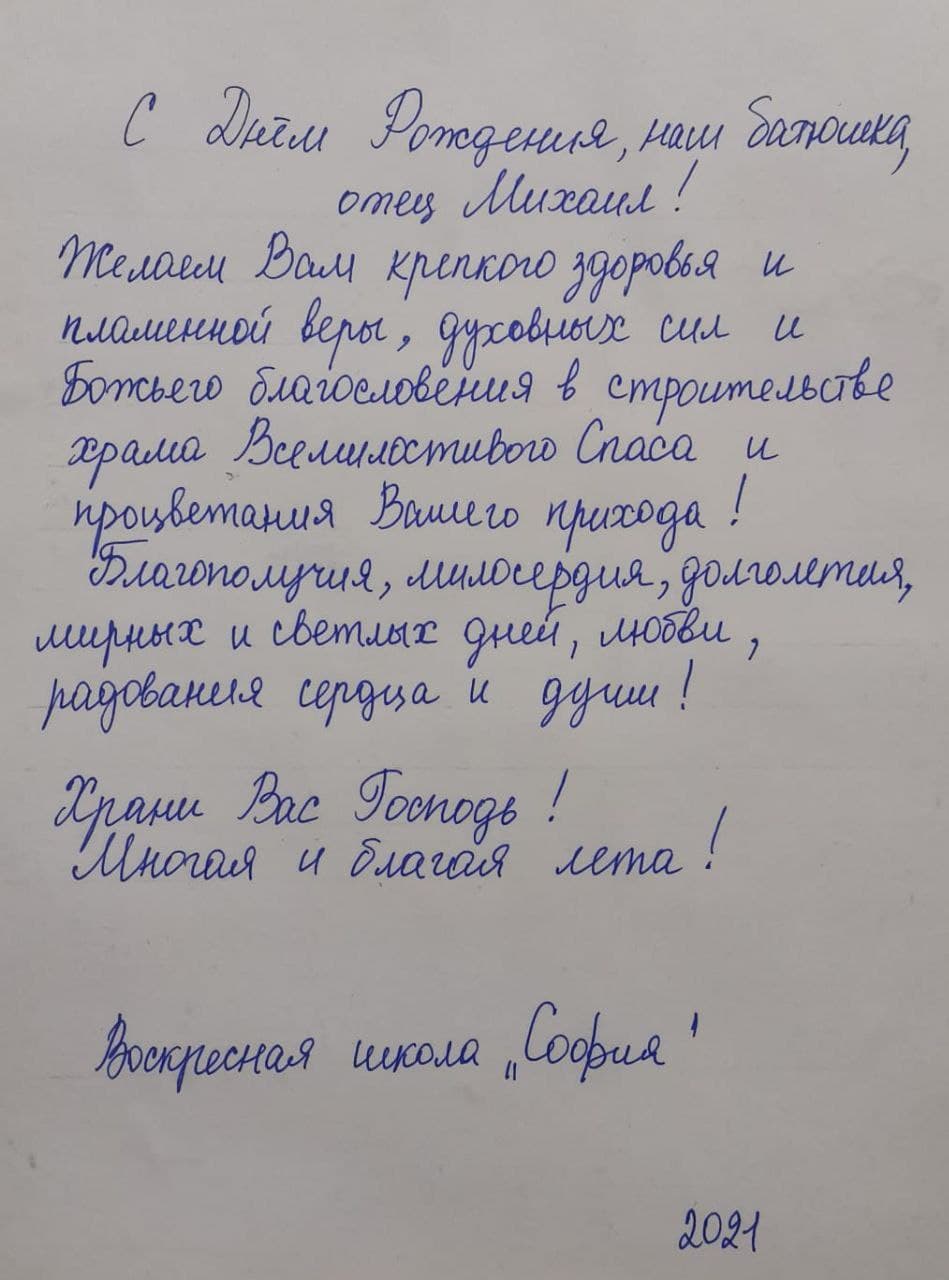 С Днём Рождения, наш батюшка,
отец Михаил!
Желаем Вам крепкого здоровья и
пламенной веры, духовных сил и
Божьего благословения в строительстве
храма Всемилостивого Спаса и
процветания Вашего прихода!
Благополучия, милосердия, долголетия,
мирных и светлых дней, любви,
радования сердца и души!
Храни Вас Господь!
Многая и благая лета!
Воскресная школа „София"
2021